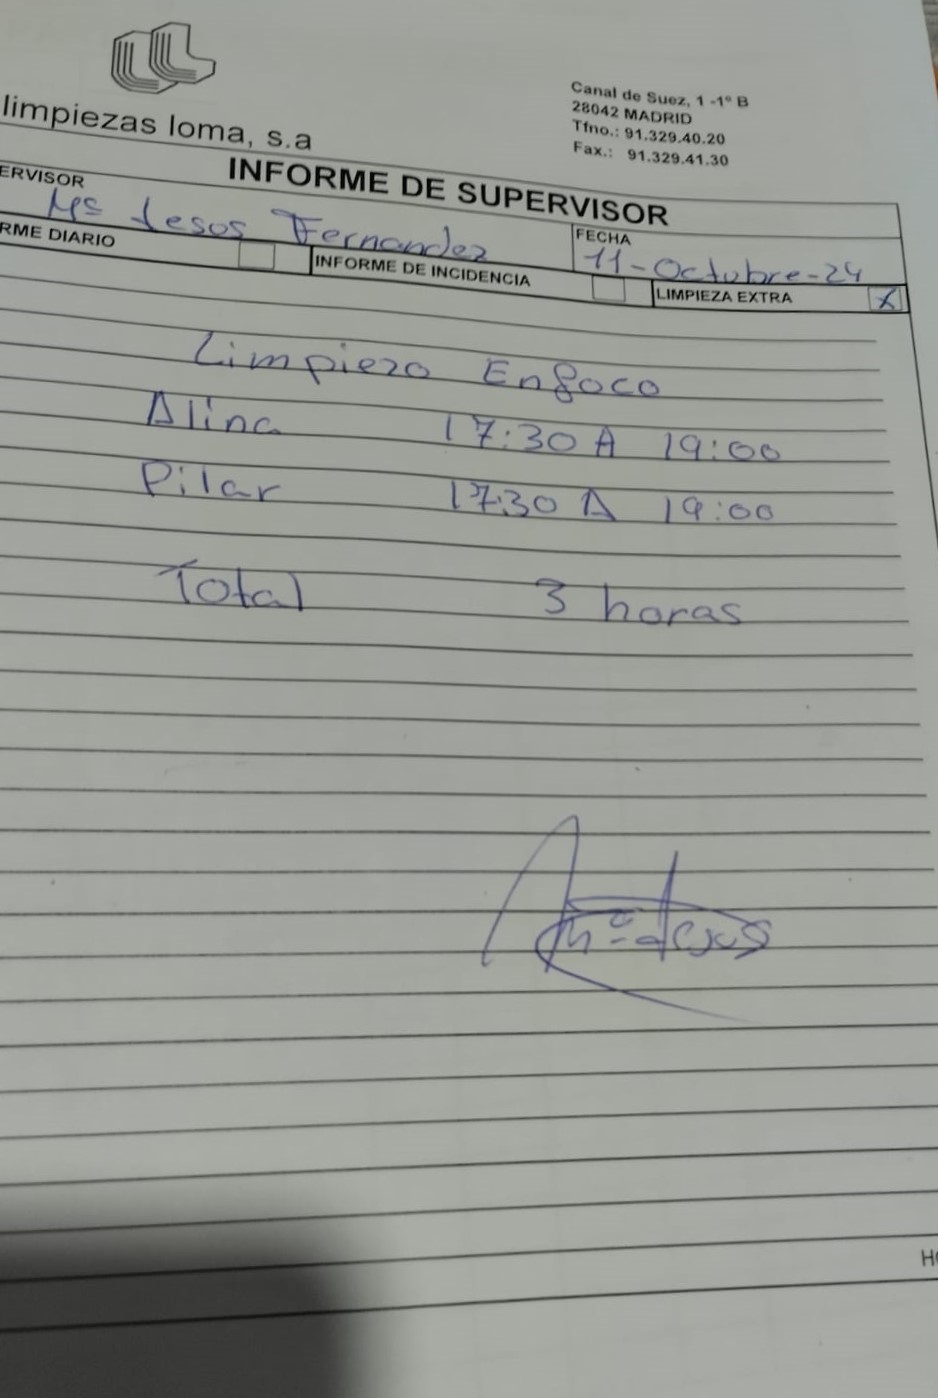 limpiezas loma, s.a
Canal de Suez, 1 -1º B
28042 MADRID
Tfno.: 91.329.40.20
Fax.: 91.329.41.30
INFORME DE SUPERVISOR
ERVISOR
Mª Jesus Fernandez
FECHA
11-Octubre-24
RME DIARIO
INFORME DE INCIDENCIA
LIMPIEZA EXTRA X
Limpieza Enfoco
Alina 17:30 A 19:00
Pilar 17:30 A 19:00
Total 3 horas
Mª Jesus